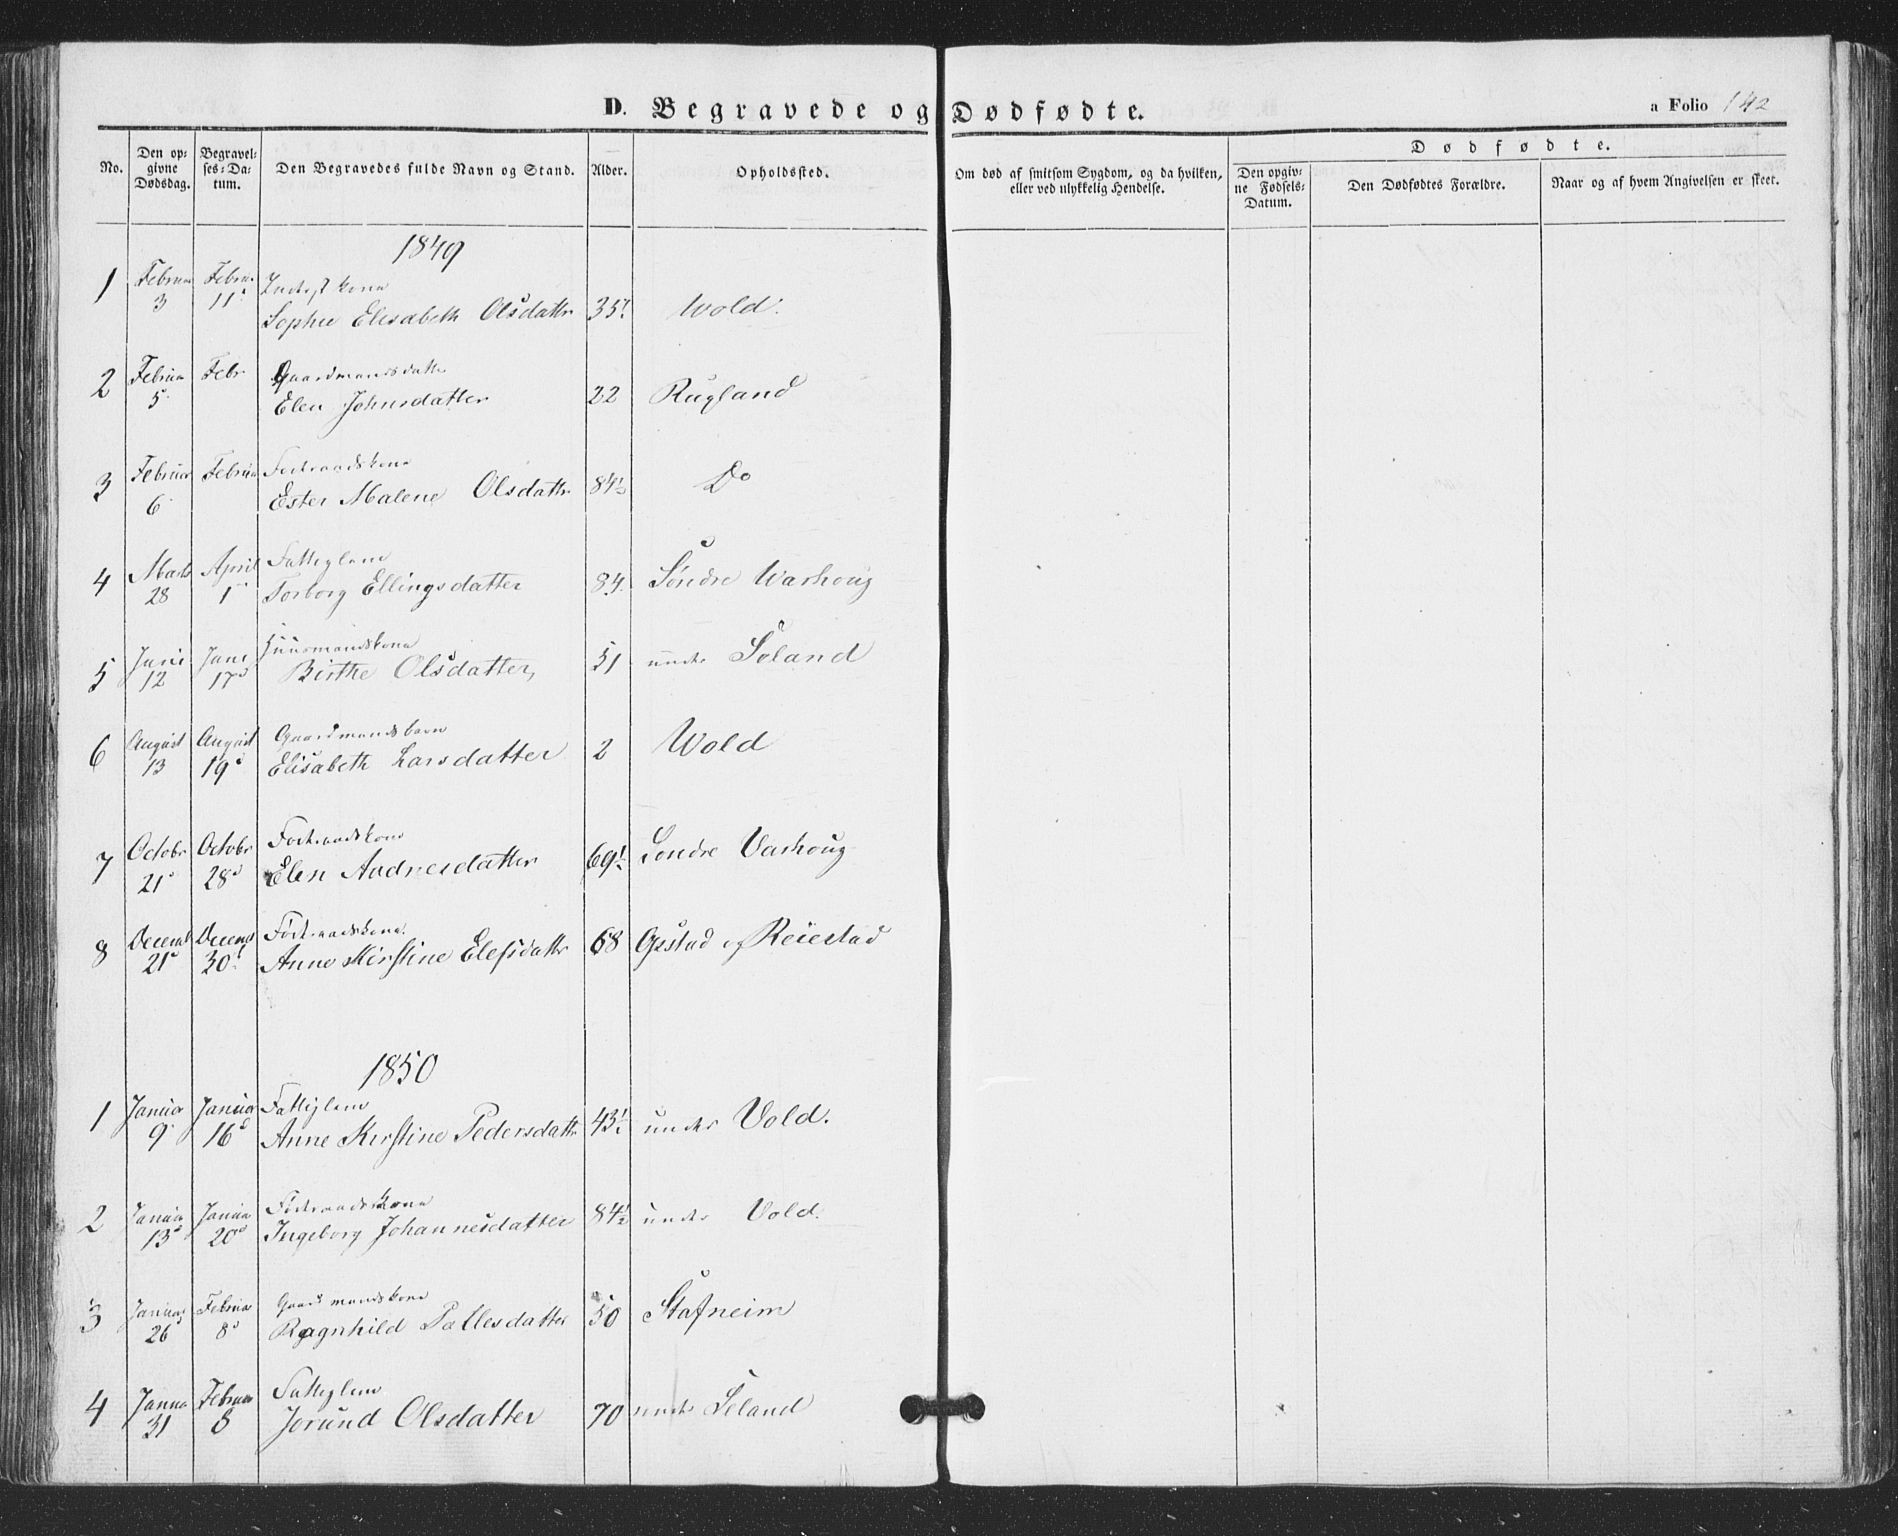 D. Begravede og Dødfødte.
a Folio 142
No.
Den opgivne Dødsdag.
Begravelses-Datum.
Den Begravedes fulde Navn og Stand.
Alder.
Opholdssted.
Om død af smitsom Sygdom, og da hvilken, eller ved ulykkelig Hendelse.
Dødfødte.
Den opgivne Fødsels-Datum.
Den Dødfødtes Forældre.
Naar og af hvem Angivelsen er skeet.
1849
1 Februar 3 Februar 11
Sophie Elisabeth Olsdattr 35 Wold.
2 Februar 5 Febr Gaardmandsdatter
Elen Johnsdatter 22 Rugland
3 Februar 6 Februar Foderaadskone
Ester Malene Olsdattr 84½ Do
4 Marts 28 April 1 Fattiglem
Torborg Ellingsdatter 84. Søndre Warhoug
5 Juni 12 Juni 17 Huusmandskone
Birthe Olsdatter, 51 under Søland
6 August 13 August 19 Gaardmandsbarn
Elisabeth Larsdatter 2 Wold
7 Octobr 21 Octobr 28 Foderaadskone
Elen Andresdatter 69½ Søndre Varhoug
8 Decemb 21 Decemb 30 Føderaadskone
Anne Kirstine Elefsdattr 68 Opstad og Reiestad
1850
1 Januar 9 Januar 16 Fattiglem
Anne Kirstine Pedersdattr 43½ under Vold.
2 Januar 13 Januar 20 Føderaadskone
Ingeborg Johannesdatter 84½ under Vold.
3 Januar 26 Februar 8 Gaardmandskone
Ragnhild Pallesdatter 50 Stafneim
4 Janua 31 Februar 8 Fattiglem
Jorund Olsdatter 70 under Søland